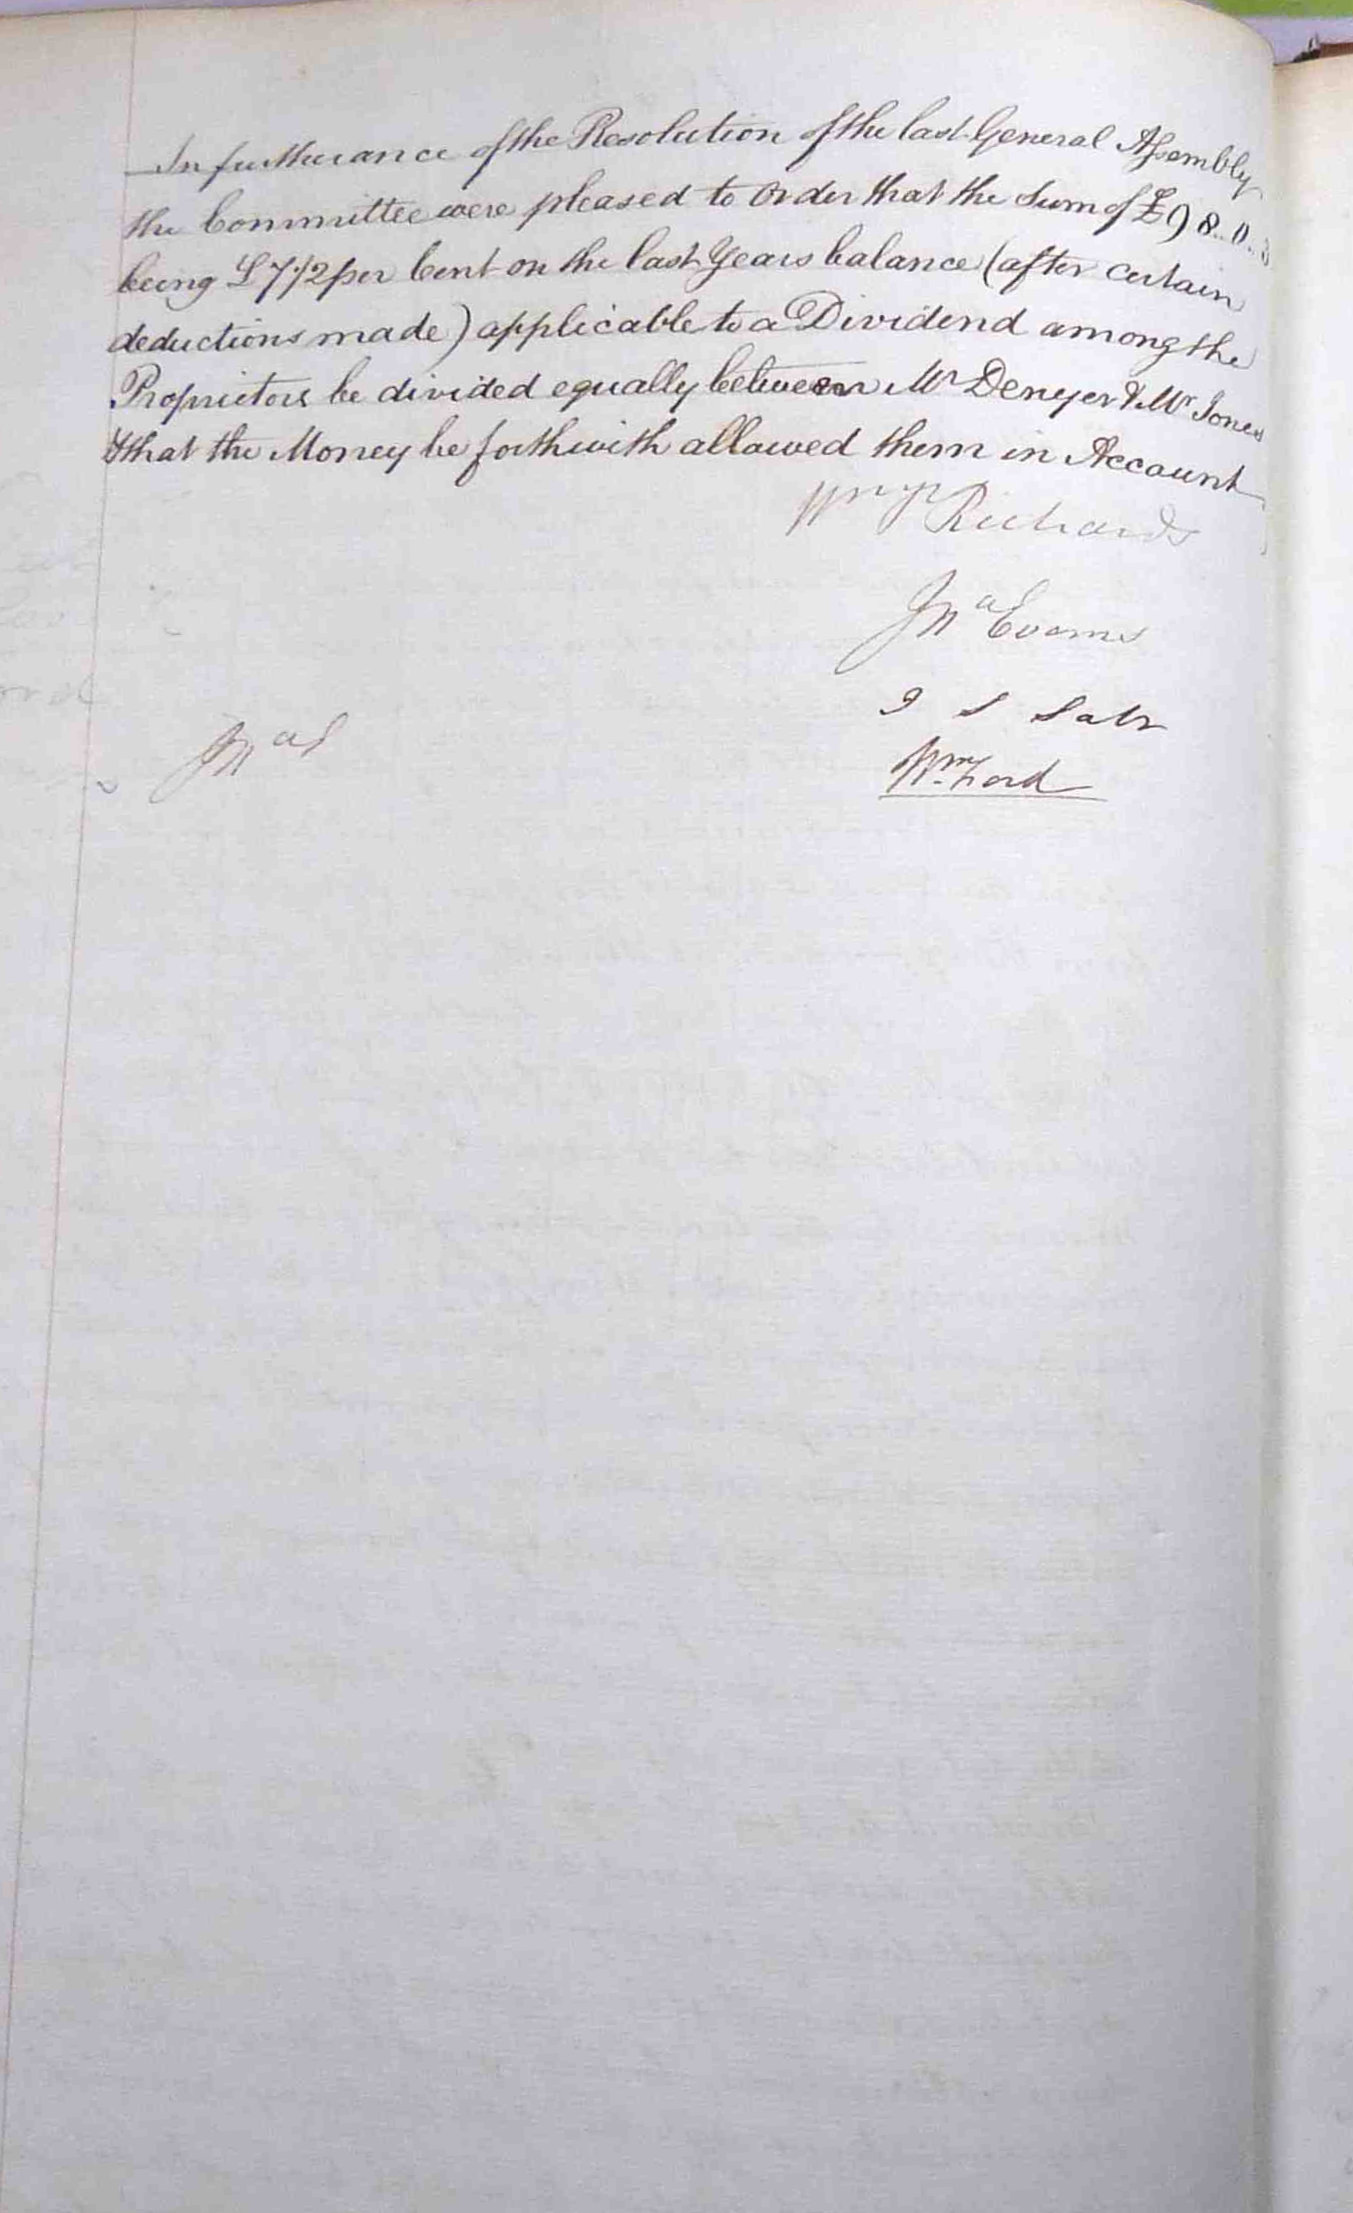 In furtherance of the Resolution of the last General Assembly
the Committee were pleased to Order that the Sum of £98..0..3
being £7 1/2 per Cent on the last Years balance (after certain
deductions made) applicable to a Dividend among the
Proprietors be divided equally between Mr Denyer & Mr Jones
& that the Money be forthwith allowed them in Account
Wm Richards
Jna Evans
J S Salt
Wm Ford